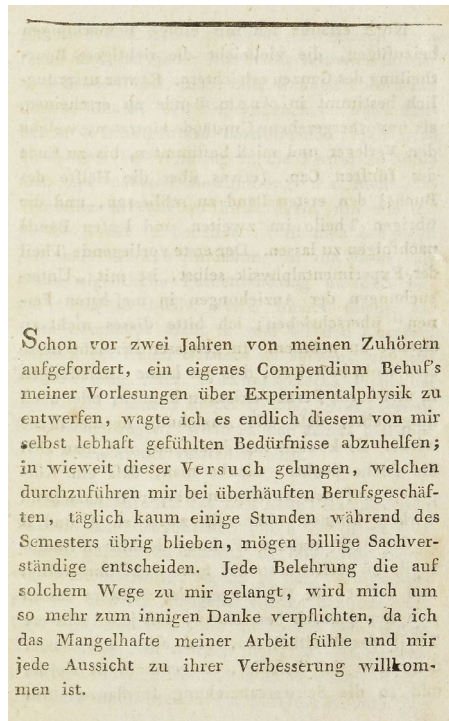 Schon vor zwei Jahren von meinen Zuhörern
aufgefordert, ein eigenes Compendium Behuf's
meiner Vorlesungen über Experimentalphysik zu
entwerfen, wagte ich es endlich diesem von mir
selbst lebhaft gefühlten Bedürfnisse abzuhelfen;
in wieweit dieser Versuch gelungen, welchen
durchzuführen mir bei überhäuften Berufsgeschäf-
ten, täglich kaum einige Stunden während des
Semesters übrig blieben, mögen billige Sachver-
ständige entscheiden. Jede Belehrung die auf
solchem Wege zu mir gelangt, wird mich um
so mehr zum innigen Danke verpflichten, da ich
das Mangelhafte meiner Arbeit fühle und mir
jede Aussicht zu ihrer Verbesserung willkom-
men ist.